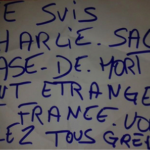 E SUIS
CHARLIE. SAC
ASE-DE-MORT
NT ETRANGE
FRANCE. VO
LEZ TOUS GRE